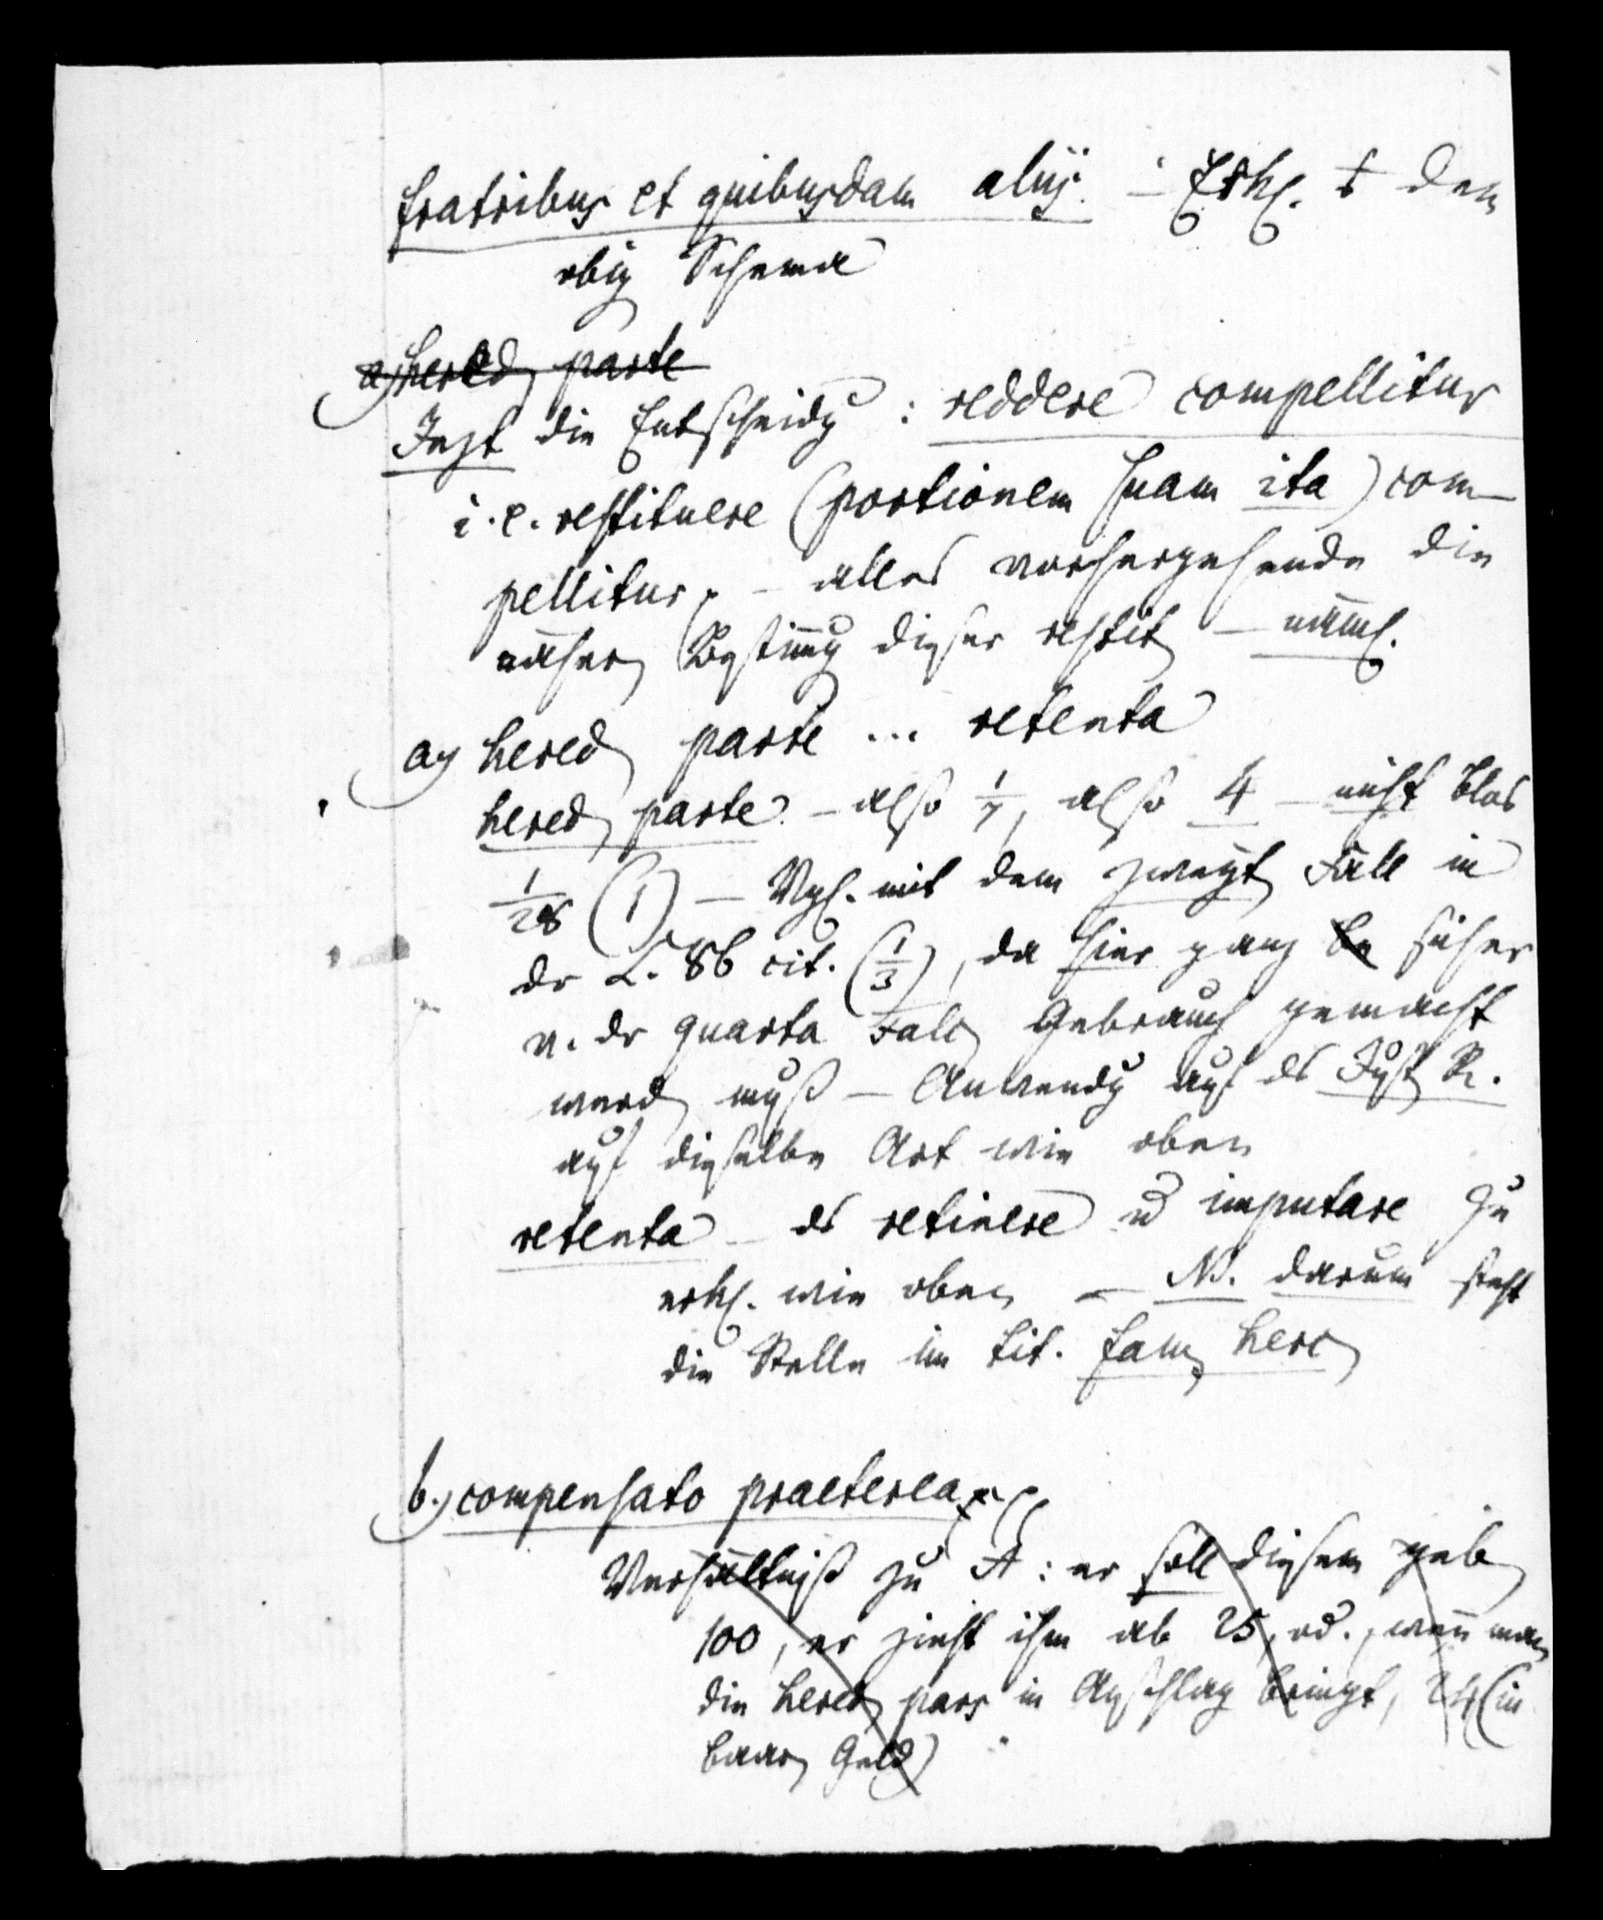 fratribus et quibusdam aliis. – Erkl. dem
obig Schema
a) hered parte
Jezt die Entscheidg : reddere compellitur
i. e. restituere (portionem suam ita) com-
pellitur. – alles vorhergehende die
nähere Bestimmg dieser restit – näml.
a) hered parte ... retenta
hered parte – also 1/7, also 4 – nicht blos
1/28 (1) – Vgl. mit dem zweyt Fall in
dr L. 86 cit. (1/3), da hier ganz be sicher
v. dr quarta Falc Gebrauch gemacht
werd muß – Anwendg auf ds Just R.
auf dieselbe Art wie oben
retenta – ds retinere u imputare zu
erkl. wie oben – NB. darum steht
die Stelle im tit. fam herc
b.) compensato praeterea
Verhältniß zu A : er soll diesem geb
100, er zieht ihm ab 25, od., wenn man
die hered pars in Anschlag bringt, 24 (in
baar Geld)